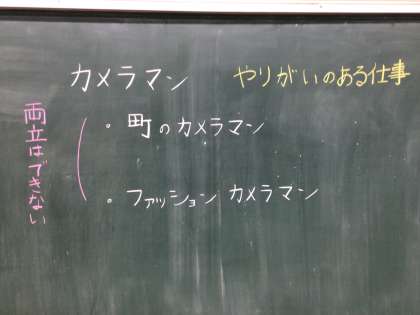 カメラマン
やりがいのある仕事
両立はできない
・町のカメラマン
・ファッションカメラマン